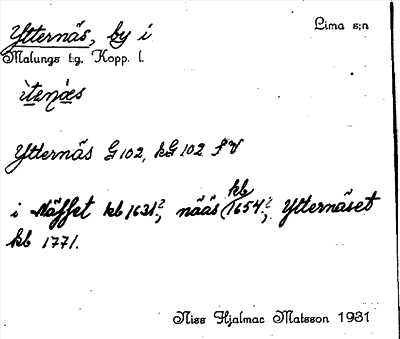 Ytternäs, by i
Lima s:n
Malungs t:g, Kopp. l.
ìtenæ̀s
Ytternäs G 102, kG 102 SV
i Nässet kb 1631?, nääs kb 1654?, Ytternäset
kb 1771.
Niss Hjalmar Matsson 1931